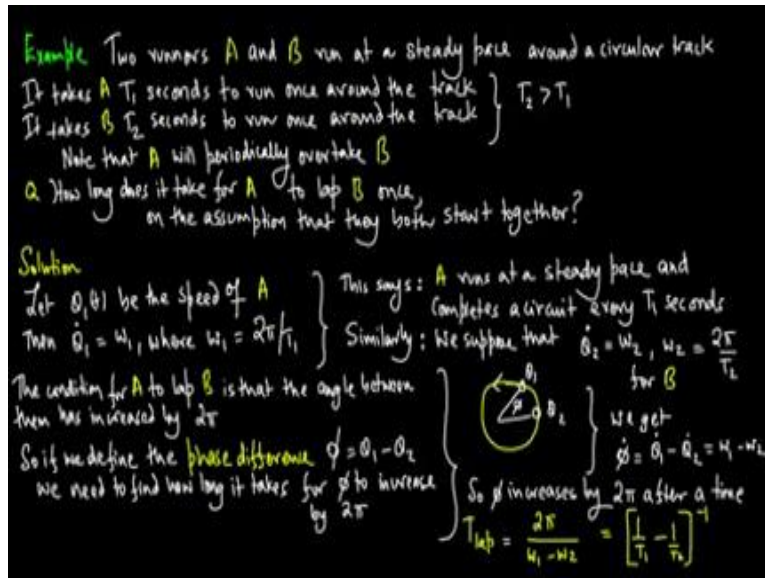 Example Two runners A and B run at a steady pace around a circular track
It takes A T₁ seconds to run once around the track
It takes B T₂ seconds to run once around the track } T₂ > T₁
Note that A will periodically overtake B
Q How long does it take for A to lap B once,
on the assumption that they both start together?
Solution
Let θ₁(t) be the speed of A
Then θ̇₁ = ω₁, where ω₁ = 2π/T₁
This says: A runs at a steady pace and
completes a circuit every T₁ seconds
Similarly: We suppose that θ̇₂ = ω₂, ω₂ = 2π/T₂
for B
The condition for A to lap B is that the angle between
them has increased by 2π
So if we define the phase difference ϕ = θ₁ - θ₂
we need to find how long it takes for ϕ to increase
by 2π
θ₁
ϕ
θ₂
we get
ϕ̇ = θ̇₁ - θ̇₂ = ω₁ - ω₂
So ϕ increases by 2π after a time
T_lap = 2π/(ω₁ - ω₂) = [1/T₁ - 1/T₂]⁻¹